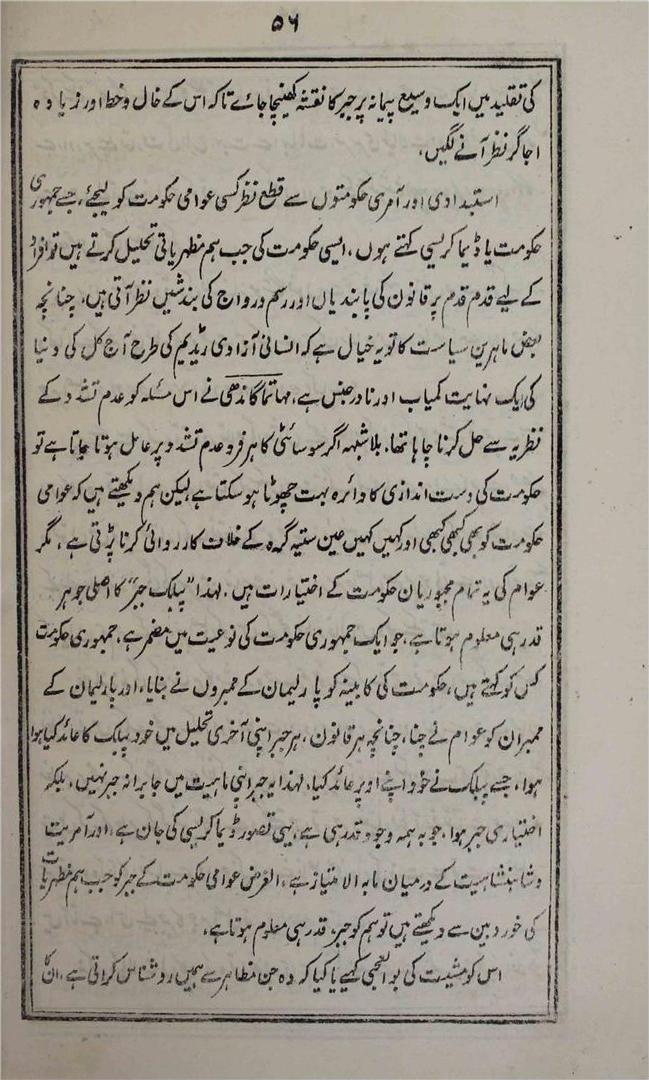 ۵۶
کی تقلید میں ایک وسیع پیمانہ پر جبر کا نقشہ کھینچا جائے تاکہ اس کے خال و خط اور زیادہ
اجاگر نظر آنے لگیں.
استبدادی اور آمری حکومتوں سے قطع نظر کسی عوامی حکومت کو لیجئے، جسے جمہوری
حکومت یا ڈیماکریسی کہتے ہوں، ایسی حکومت کی جب ہم مظہریاتی تحلیل کرتے ہیں تو افراد
کے لیے قدم قدم پر قانون کی پابندیاں اور رسم و رواج کی بندشیں نظر آتی ہیں، چنانچہ
بعض ماہرین سیاست کا تو یہ خیال ہے کہ انسانی آزادی ریڈیم کی طرح آج کل کی دنیا
کی ایک نہایت کمیاب اور نادر جنس ہے، مہاتما گاندھی نے اس مسئلہ کو عدم تشدد کے
نظریہ سے حل کرنا چاہا تھا. بلاشبہ اگر سوسائٹی کا ہر فرد عدم تشدد پر عامل ہوتا جاتا ہے تو
حکومت کی دست اندازی کا دائرہ بہت چھوٹا ہو سکتا ہے لیکن ہم دیکھتے ہیں کہ عوامی
حکومت کو بھی کبھی کبھی اور کہیں کہیں عین ستیہ گرہ کے خلاف کارروائی کرنا پڑتی ہے، مگر
عوام کی یہ تمام مجبوریاں حکومت کے اختیارات ہیں. لہذا "پبلک جبر" کا اصلی جوہر
قدر ہی معلوم ہوتا ہے، جو ایک جمہوری حکومت کی نوعیت میں مضمر ہے، جمہوری حکومت
کس کو کہتے ہیں، حکومت کی کابینہ کو پارلیمان کے ممبروں نے بنایا، اور پارلیمان کے
ممبران کو عوام نے چنا، چنانچہ ہر قانون، ہر جبر اپنی آخری تحلیل میں خود پبلک کا عائد کیا ہوا
ہوا، جسے پبلک نے خود اپنے اوپر عائد کیا، لہذا یہ جبر اپنی ماہیت میں جابرانہ جبر نہیں، بلکہ
اختیاری جبر ہوا، جو بہ ہمہ وجوہ قدر ہی ہے، یہی تصور ڈیماکریسی کی جان ہے، اور آمریت
و شاہنشاہیت کے درمیان مابہ الامتیاز ہے، الغرض عوامی حکومت کے جبر کو جب ہم مظہریات
کی خوردبین سے دیکھتے ہیں تو ہم کو جبر، قدر ہی معلوم ہوتا ہے،
اس کو مشیت کی بوالعجبی کہیے یا کیا کہ وہ جن مظاہر سے ہمیں روشناس کراتی ہے، ان کا